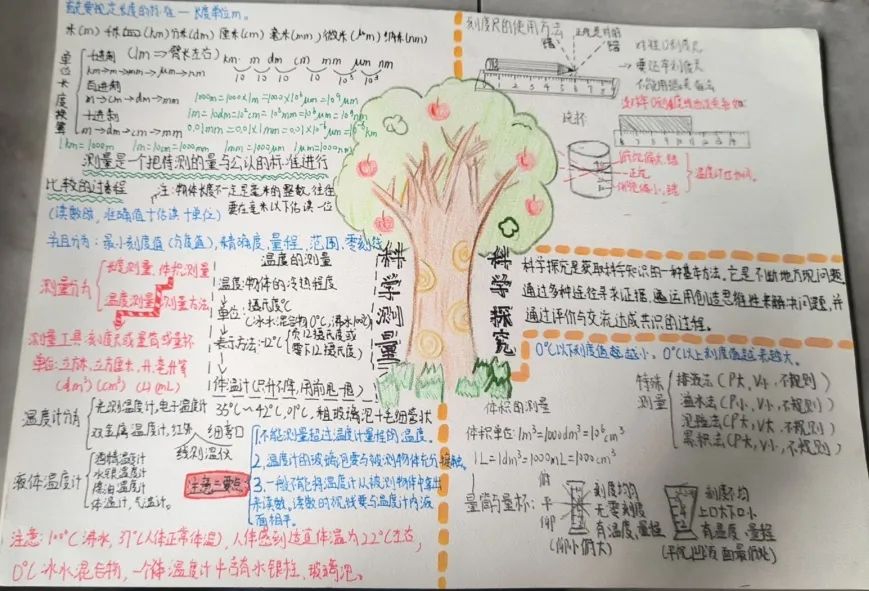 米(m) 千米(km) 分米(dm) 厘米(cm) 毫米(mm) 微米(μm) 纳米(nm)
单位长度换算
十进制 (1m⇒臂长左右)
km m dm cm mm μm nm
10³ 10 10 10 10³ 10³
km→m→mm→μm→nm
百进制
m→cm→dm→mm
十进制
m→dm→cm→mm
1km=1000m 1m=10dm=100cm 1mm=1000μm 1μm=1000nm
测量是一个把待测的量与公认的标准进行
比较的过程
注:物体长度不一定是毫米的整数,往往
要在毫米以下估读一位
(读数时,准确值+估读+单位)
并且分为:最小刻度值(分度值),精确度,量程,范围,零刻线
测量分为
长度测量,体积测量
温度测量 测量方法
测量工具:刻度尺或量筒或量杯
单位:立方米,立方厘米,升,毫升等
(dm³)(cm³) (L)(mL)
温度的测量
温度:物体的冷热程度
单位:摄氏度℃
(冰水混合物0℃,沸水100℃)
表示方法:-12℃
负12摄氏度或
零下12摄氏度
体温计(只升不降,用前甩一甩)
35℃~42℃,0.1℃,粗玻璃泡+毛细管状
细弯口
温度计分为
光测温度计,电子温度计
双金属温度计,红外
线测温仪
液体温度计
酒精温度计
水银温度计
煤油温度计
体温计,气温计.
注意三要点:
1,不能测量超过温度计量程的温度。
2,温度计的玻璃泡要与被测物体充分接触。
3,一般不能将温度计从被测物体中拿出
来读数。读数的视线要与温度计内液
面相平。
注意:100℃沸水,37℃(人体正常体温),人体感到适宜体温为22℃左右,
0℃冰水混合物,一个体温度计中含有水银柱、玻璃泡。
科学测量
科学探究
刻度尺的使用方法
错
正视是对的
错
俯视偏大,错
正视
仰视偏小,错
科学探究是获取科学知识的一种基本方法,它是不断地发现问题
通过多种途径寻求证据,运用创造思维性来解决问题,并
通过评价与交流达成共识的过程。
0℃以下刻度值越越小,0℃以上刻度值越来越大。
体积的测量
体积单位:1m³=1000dm³=10⁶cm³
1L=1dm³=1000mL=1000cm³
特殊测量
排液法(P大,V小,不规则)
溢水法(P小,V小,不规则)
沉坠法(P小,V大,不规则)
累积法(P大,V小,不规则)
量筒与量杯:
俯
平
仰
刻度均匀
无零刻度
有温度,量程
(仰小俯大)
刻度不均
上口大下口小
有温度,量程
(平视凹液面最低处)